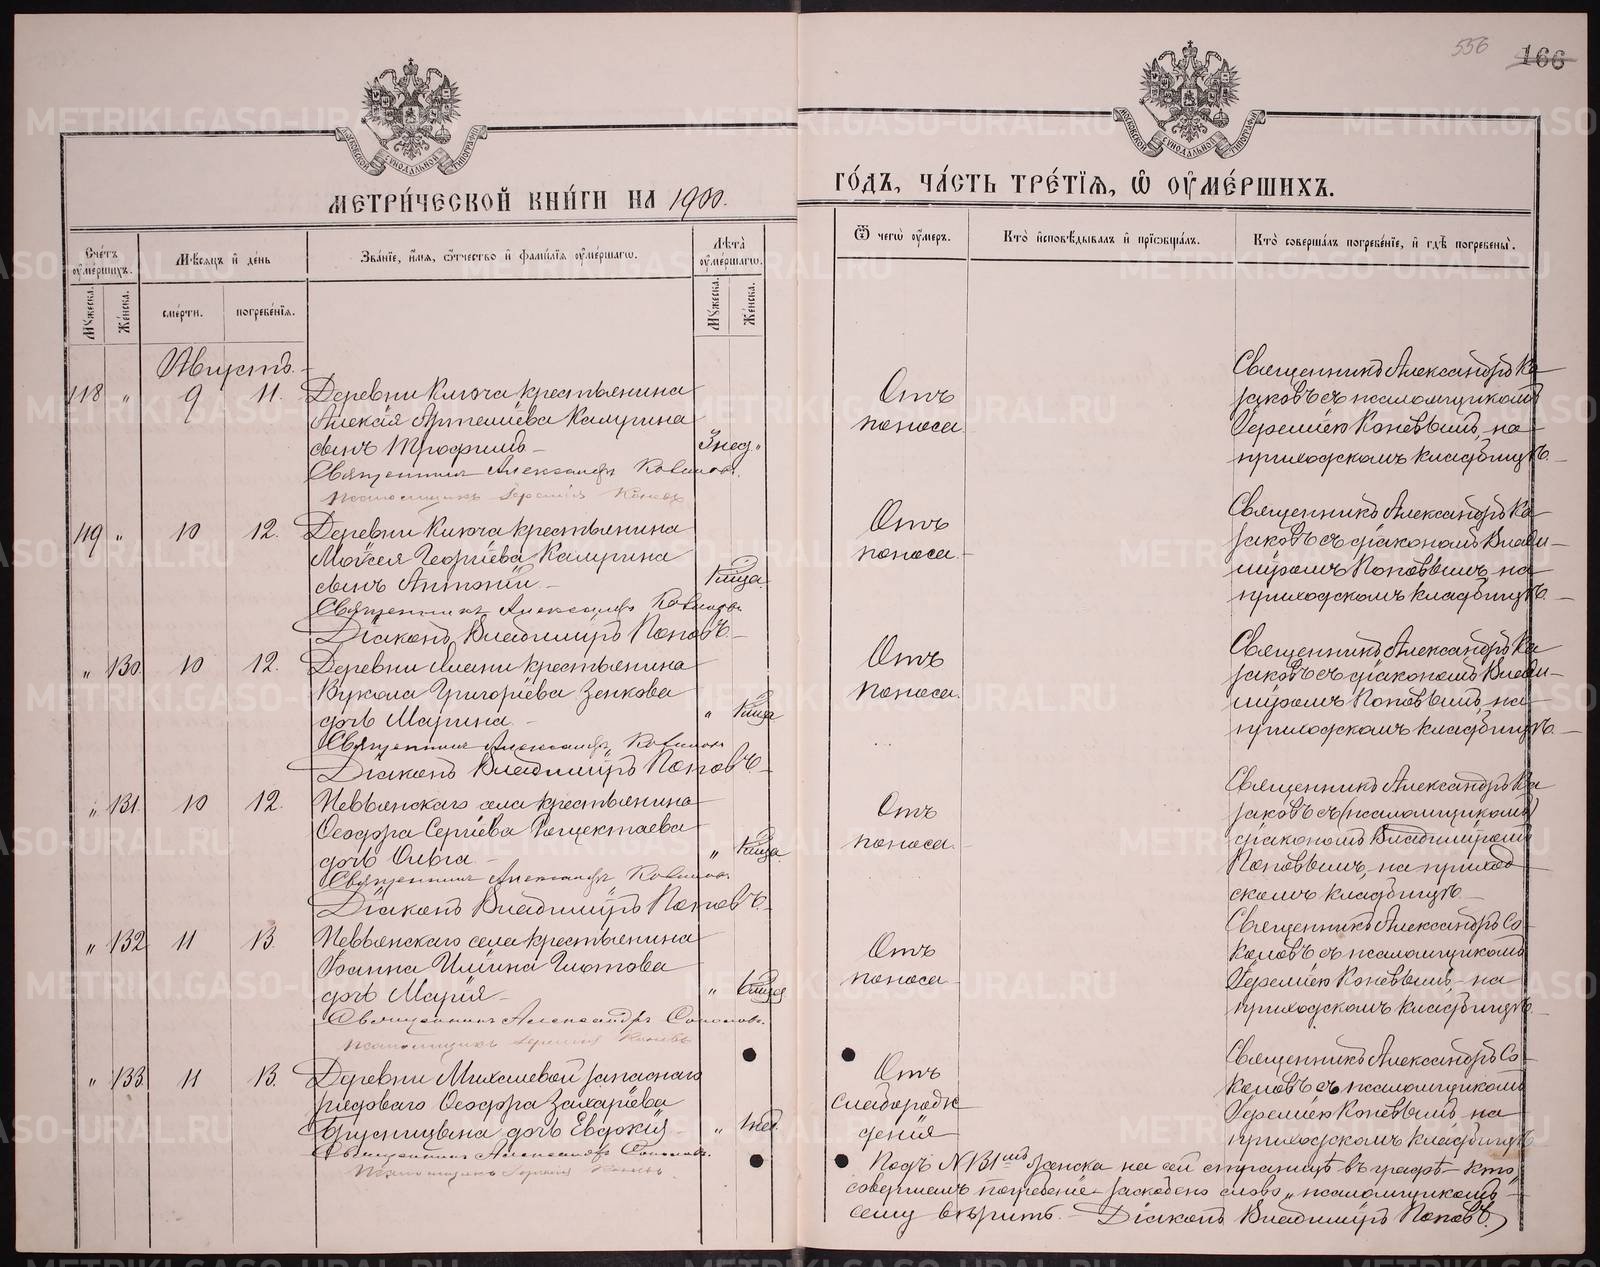 556 166
МЕТРИ́ЧЕСКОЙ КНИ́ГИ НА 1900.
ГО́ДЪ, ЧА́СТЬ ТРЕ́ТІѦ, Ѽ ОУ҆МЕ́РШИХЪ.
Сче́тъ оу҆ме́ршихъ.
Мꙋ́жеска.
Же́нска.
Мѣ́сяцъ и҆ де́нь
сме́рти.
погребе́нїѧ.
Зва́нїе, и҆́мѧ, ѻ҆́тчество и҆ фами́лїѧ оу҆ме́ршагѡ.
Лѣ́та оу҆ме́ршагѡ.
Мꙋ́жеска.
Же́нска.
Ѿ чегѡ̀ оу҆́меръ.
Кто̀ и҆сповѣ́дывалъ и҆ прїѡбща́лъ.
Кто̀ соверша́лъ погребе́нїе, и҆ гдѣ̀ погребены̀.
Августъ.
118 „ 9 11.
Деревни Ключа крестьянина
Алексія Артеміева Калугина
сынъ Трофимъ
3 нед.
Священникъ Александръ
Псаломщикъ Іеремія Коневъ
Отъ
поноса.
Священникъ Александръ Ка
заковъ съ псаломщикомъ
Іереміею Коневымъ, на
приходскомъ кладбищѣ.
119 „ 10 12.
Деревни Ключа крестьянина
Моѵсея Георгіева Калугина
сынъ Антоній
Священникъ Александръ
Діаконъ Владиміръ Поповъ.
Отъ
поноса.
Священникъ Александръ Ка
заковъ съ діакономъ Влади-
міромъ Поповымъ, на
приходскомъ кладбищѣ.
„ 130. 10 12.
крестьянина
Вукола Григоріева Зенкова
дочь Марина.
„
Священникъ Александръ
Діаконъ Владиміръ Поповъ
Отъ
поноса.
Священникъ Александръ Ка
заковъ съ діакономъ Влади-
міромъ Поповымъ, на
приходскомъ кладбищѣ.
„ 131 10 12.
Невьянскаго села крестьянина
Ѳеодора Сергіева
дочь Ольга
„
Священникъ Александръ
Діаконъ Владиміръ Поповъ
Отъ
поноса.
Священникъ Александръ Ка
заковъ съ (псаломщикомъ)
діакономъ Владиміромъ
Поповымъ, на приход
скомъ кладбищѣ.
„ 132 11 13.
Невьянскаго села крестьянина
Іоанна Иліина Глотова
дочь Марія
„
Священникъ Александръ Соколовъ.
Псаломщикъ Іеремія Коневъ
Отъ
поноса
Священникъ Александръ Со-
коловъ съ псаломщикомъ
Іереміею Коневымъ, на
приходскомъ кладбищѣ.
„ 133. 11 13.
Деревни Михалевой запаснаго
рядоваго Ѳеодора Захаріева
Брусницына дочь Евдокія
„ 1 нед.
Священникъ Александръ Соколовъ.
Псаломщикъ Іеремія Коневъ
Отъ
слаборож
денія
Священникъ Александръ Со-
коловъ съ псаломщикомъ
Іереміею Коневымъ, на
приходскомъ кладбищѣ
Подъ № 131мъ женска на сей страницѣ въ графѣ – кто
совершалъ погребеніе заскоблено слово „псаломщикомъ“
сему вѣрить. – Діаконъ Владиміръ Поповъ.
METRIKI.GASO-URAL.RU